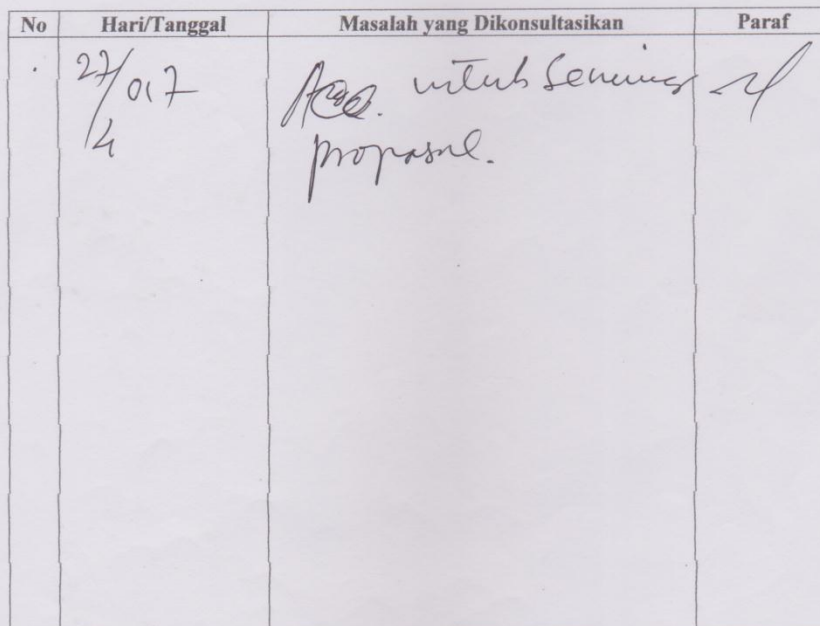 No Hari/Tanggal Masalah yang Dikonsultasikan Paraf
27/4 017 Acc. untuk Seminar
proposal.